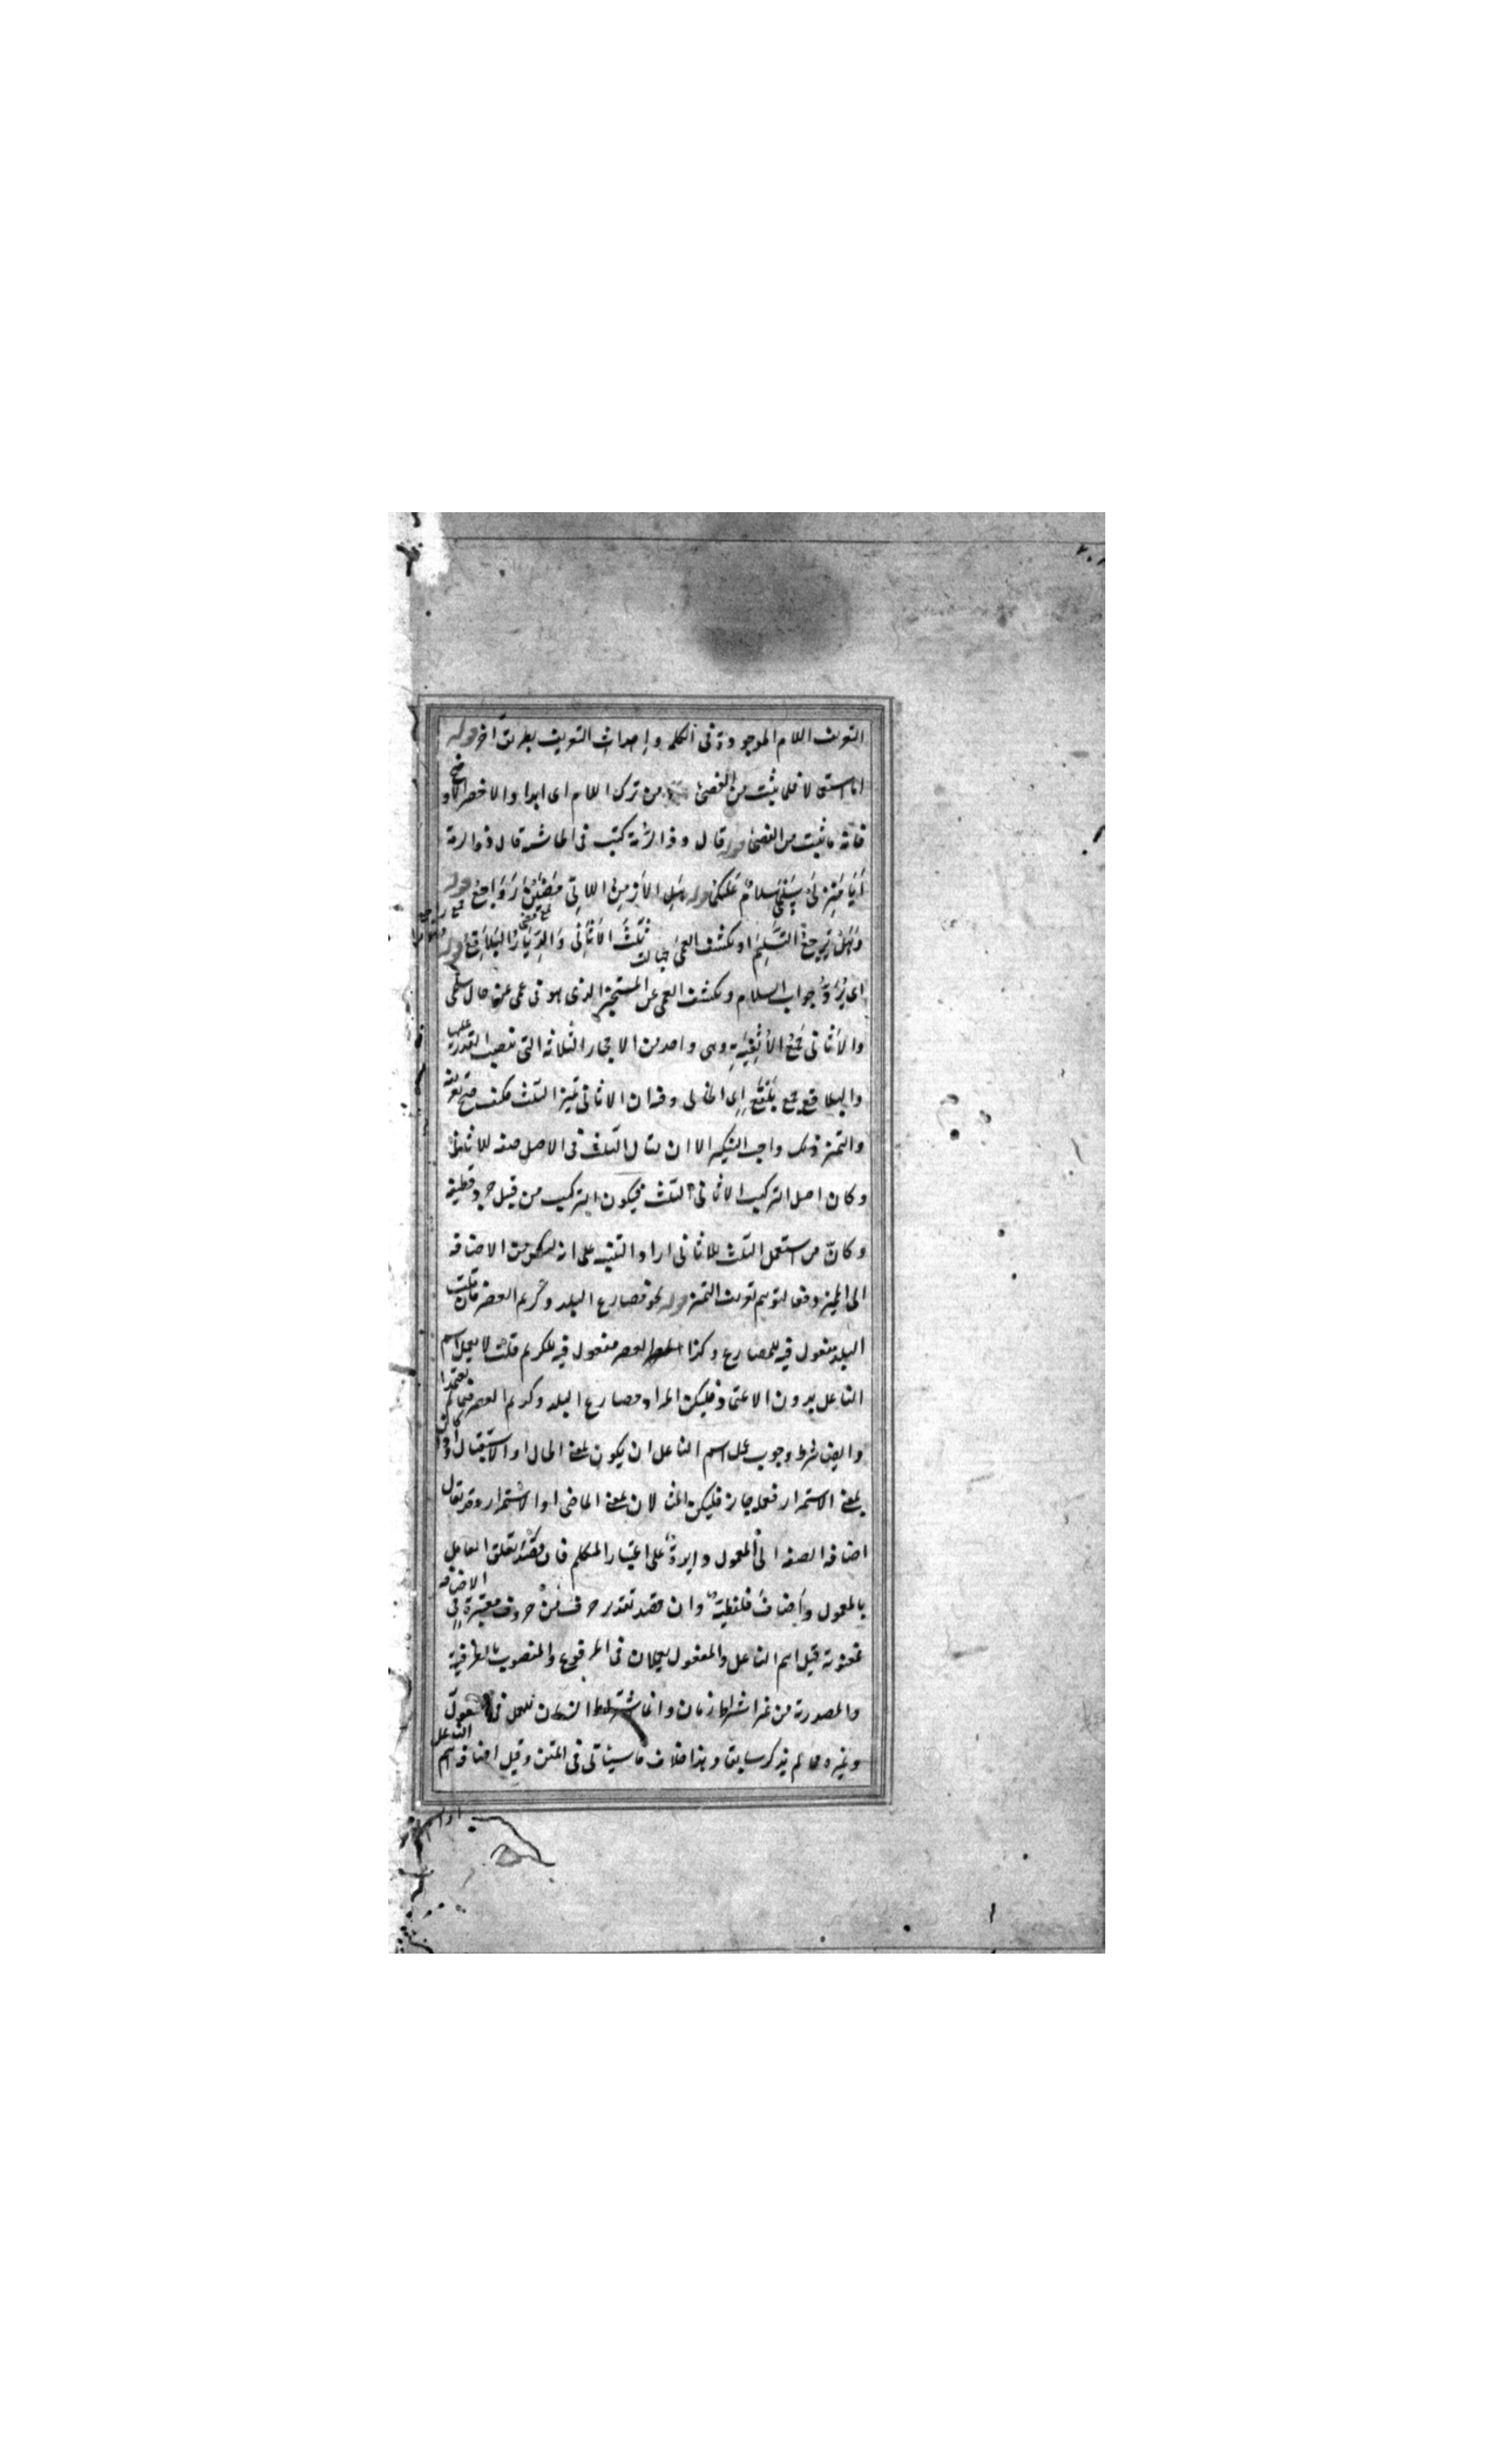 التعريف اللام الموجودة في الكلمة وإحداث التعريف بطريق آخر قوله
اما استعمالا فلما ثبت من الفصحاء من ترك اللام اى ابدا والاخصر
فانه ما ثبت من الفصحاء قوله قال ذو الرمة كتب في الحاشية قال ذو الرمة
أيا منزلي سلمى سلام عليكما هل الأزمن اللاتي مضين رواجع قوله
وهل يرجع التسليم او يكشف العمى ثلث الاثافي والديار البلاقع قوله
اى يرد جواب السلام ويكشف العمى عن المستخبر الذى هو في عمى عن حال سلمى
والاثافي جمع الاثفية وهى واحد من الاحجار الثلاثة التي تنصب القدر عليها
والبلاقع جمع بلقع اى الخالى وفيه ان الاثافي تميز الثلث فكيف صح تعريفه
والتميز واجب التنكير الا ان يقال الثلث في الاصل صفة للاثافي
وكان اصل التركيب الاثافي الثلث فيكون التركيب من قبيل جرد قطيفة
وكان من استعمل الثلث للاثافي اراد التنبيه على انه ليس من الاضافة
الى المميز دفعا لتوهم تعريف التميز قوله نحو مصارع البلد وكريم العصر فان قلت
البلد مفعول فيه للمصارع وكذا العصر مفعول فيه للكريم قلت لا يعمل اسم
الفاعل بدون الاعتماد فليكن المراد مصارع البلد وكريم العصر فيما لم يعتمدا
وايضا شرط وجوب عمل اسم الفاعل ان يكون بمعنى الحال او الاستقبال
بمعنى الاستمرار فعمله جائز فليكن المثالان بمعنى الماضى او الاستمرار وقد يقال
اضافة الصفة الى المعمول دايرة على اعتبار المتكلم فان قصد تعلق العامل
بالمعمول واضاف فلفظية وان قصد تقدير حرف من حروف معتبرة في الاضافة
فمعنوية قيل اسم الفاعل والمفعول يعملان في المرفوع والمنصوب بالظرفية
والمصدرية من غير اشتراط زمان وانما اشتراط الزمان للعمل في المفعول
وغيره مما لم يذكر سابقا وهذا خلاف ما سيأتى في المتن وقيل اضافة اسم الفاعل